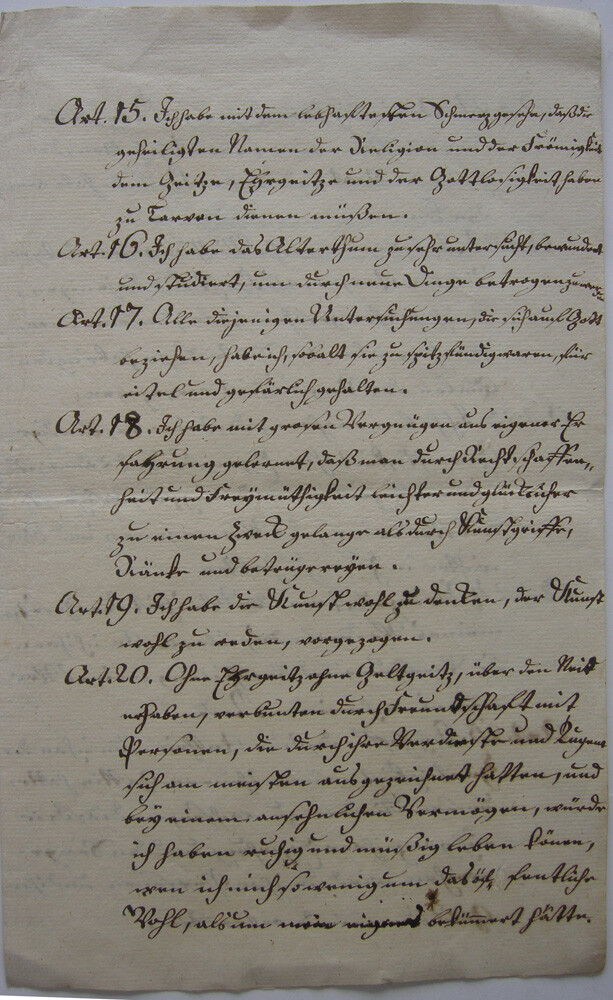 Art. 15. Ich habe mit dem lebhaftesten Schmerz gesehn, daß die
geheiligten Namen der Religion und der Frömigkeit
dem Geitze, Ehrgeitze und der Gottlosigkeit haben
zu Larven dienen müßen.
Art. 16. Ich habe das Alterthum zu sehr untersucht, bewundert
und studiert, um durch neue Dinge betrogen zu werden
Art. 17. Alle diejenigen Untersuchungen, die sich auf Gott
beziehen, hab ich, sobalt sie zu spitzfündig waren, für
eitel und gefärlich gehalten.
Art. 18. Ich habe mit grosen Vergnügen aus eigener Er
fahrung gelernet, daß man durch Rechtschaffen,,
heit und Freymüthigkeit leichter und glücklicher
zu einen Zweck gelange als durch Kunstgriffe,
Ränke und betrügereyen.
Art. 19. Ich habe die Kunst wohl zu denken, der Kunst
wohl zu reden, vorgezogen.
Art. 20. Ohne Ehrgeitz ohne Geltgeitz, über den Neid
erhaben, verbunten durch Freundschaft mit
Personen, die durch ihre Verdienste und Tugent
sich am meisten ausgezeichnet hatten, und
bey einem ansehnlichen Vermögen, würde
ich haben ruhig und müßig leben könen,
wen ich mich so wenig um das öffentliche
Wohl, als um mein eigenes bekümmert hätte.